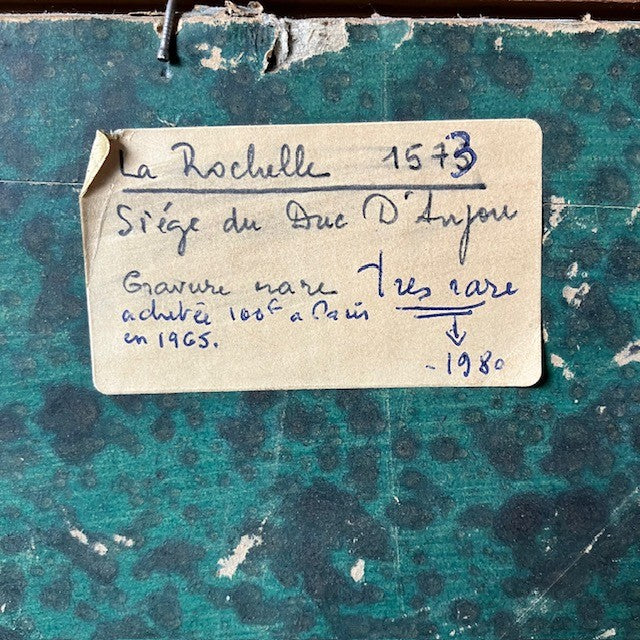 La Rochelle 1573
Siége du Duc D'Anjou
Gravure rare Très rare
achetée 100F a Paris
en 1965.
- 1980